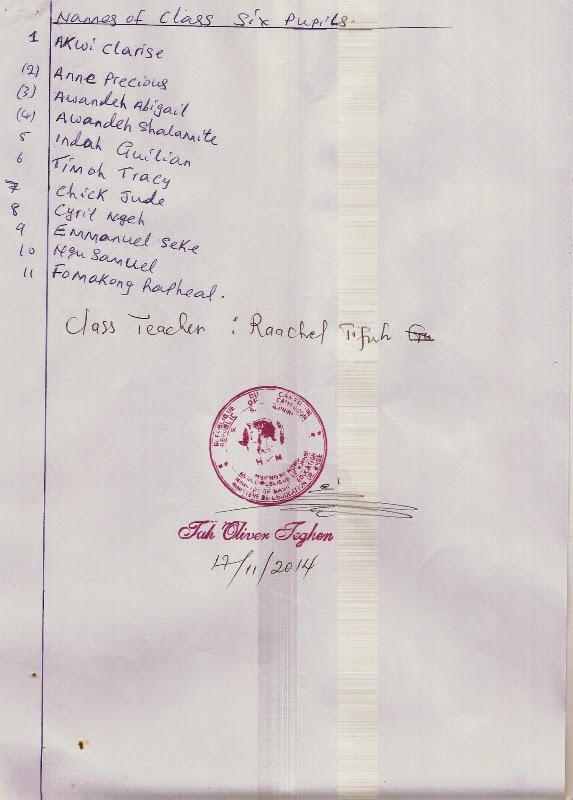 Names of Class Six Pupils.
1 Akwi Clarise
(2) Anne Precious
(3) Awandeh Abigail
(4) Awandeh Shalamite
5 Indah Guilian
6 Timoh Tracy
7 Chick Jude
8 Cyril Ngeh
9 Emmanuel Seke
10 Ngu Samuel
11 Fomakong Rapheal.
Class Teacher : Raachel Tifuh
REPUBLIQUE DU CAMEROUN
REPUBLIC OF CAMEROON
H M
Tah Oliver Teghen
17/11/2014